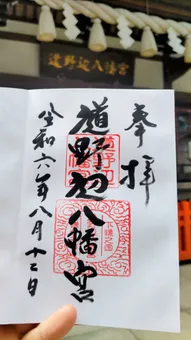 道野辺八幡宮
奉拝
道野辺八幡宮
令和六年八月十二日